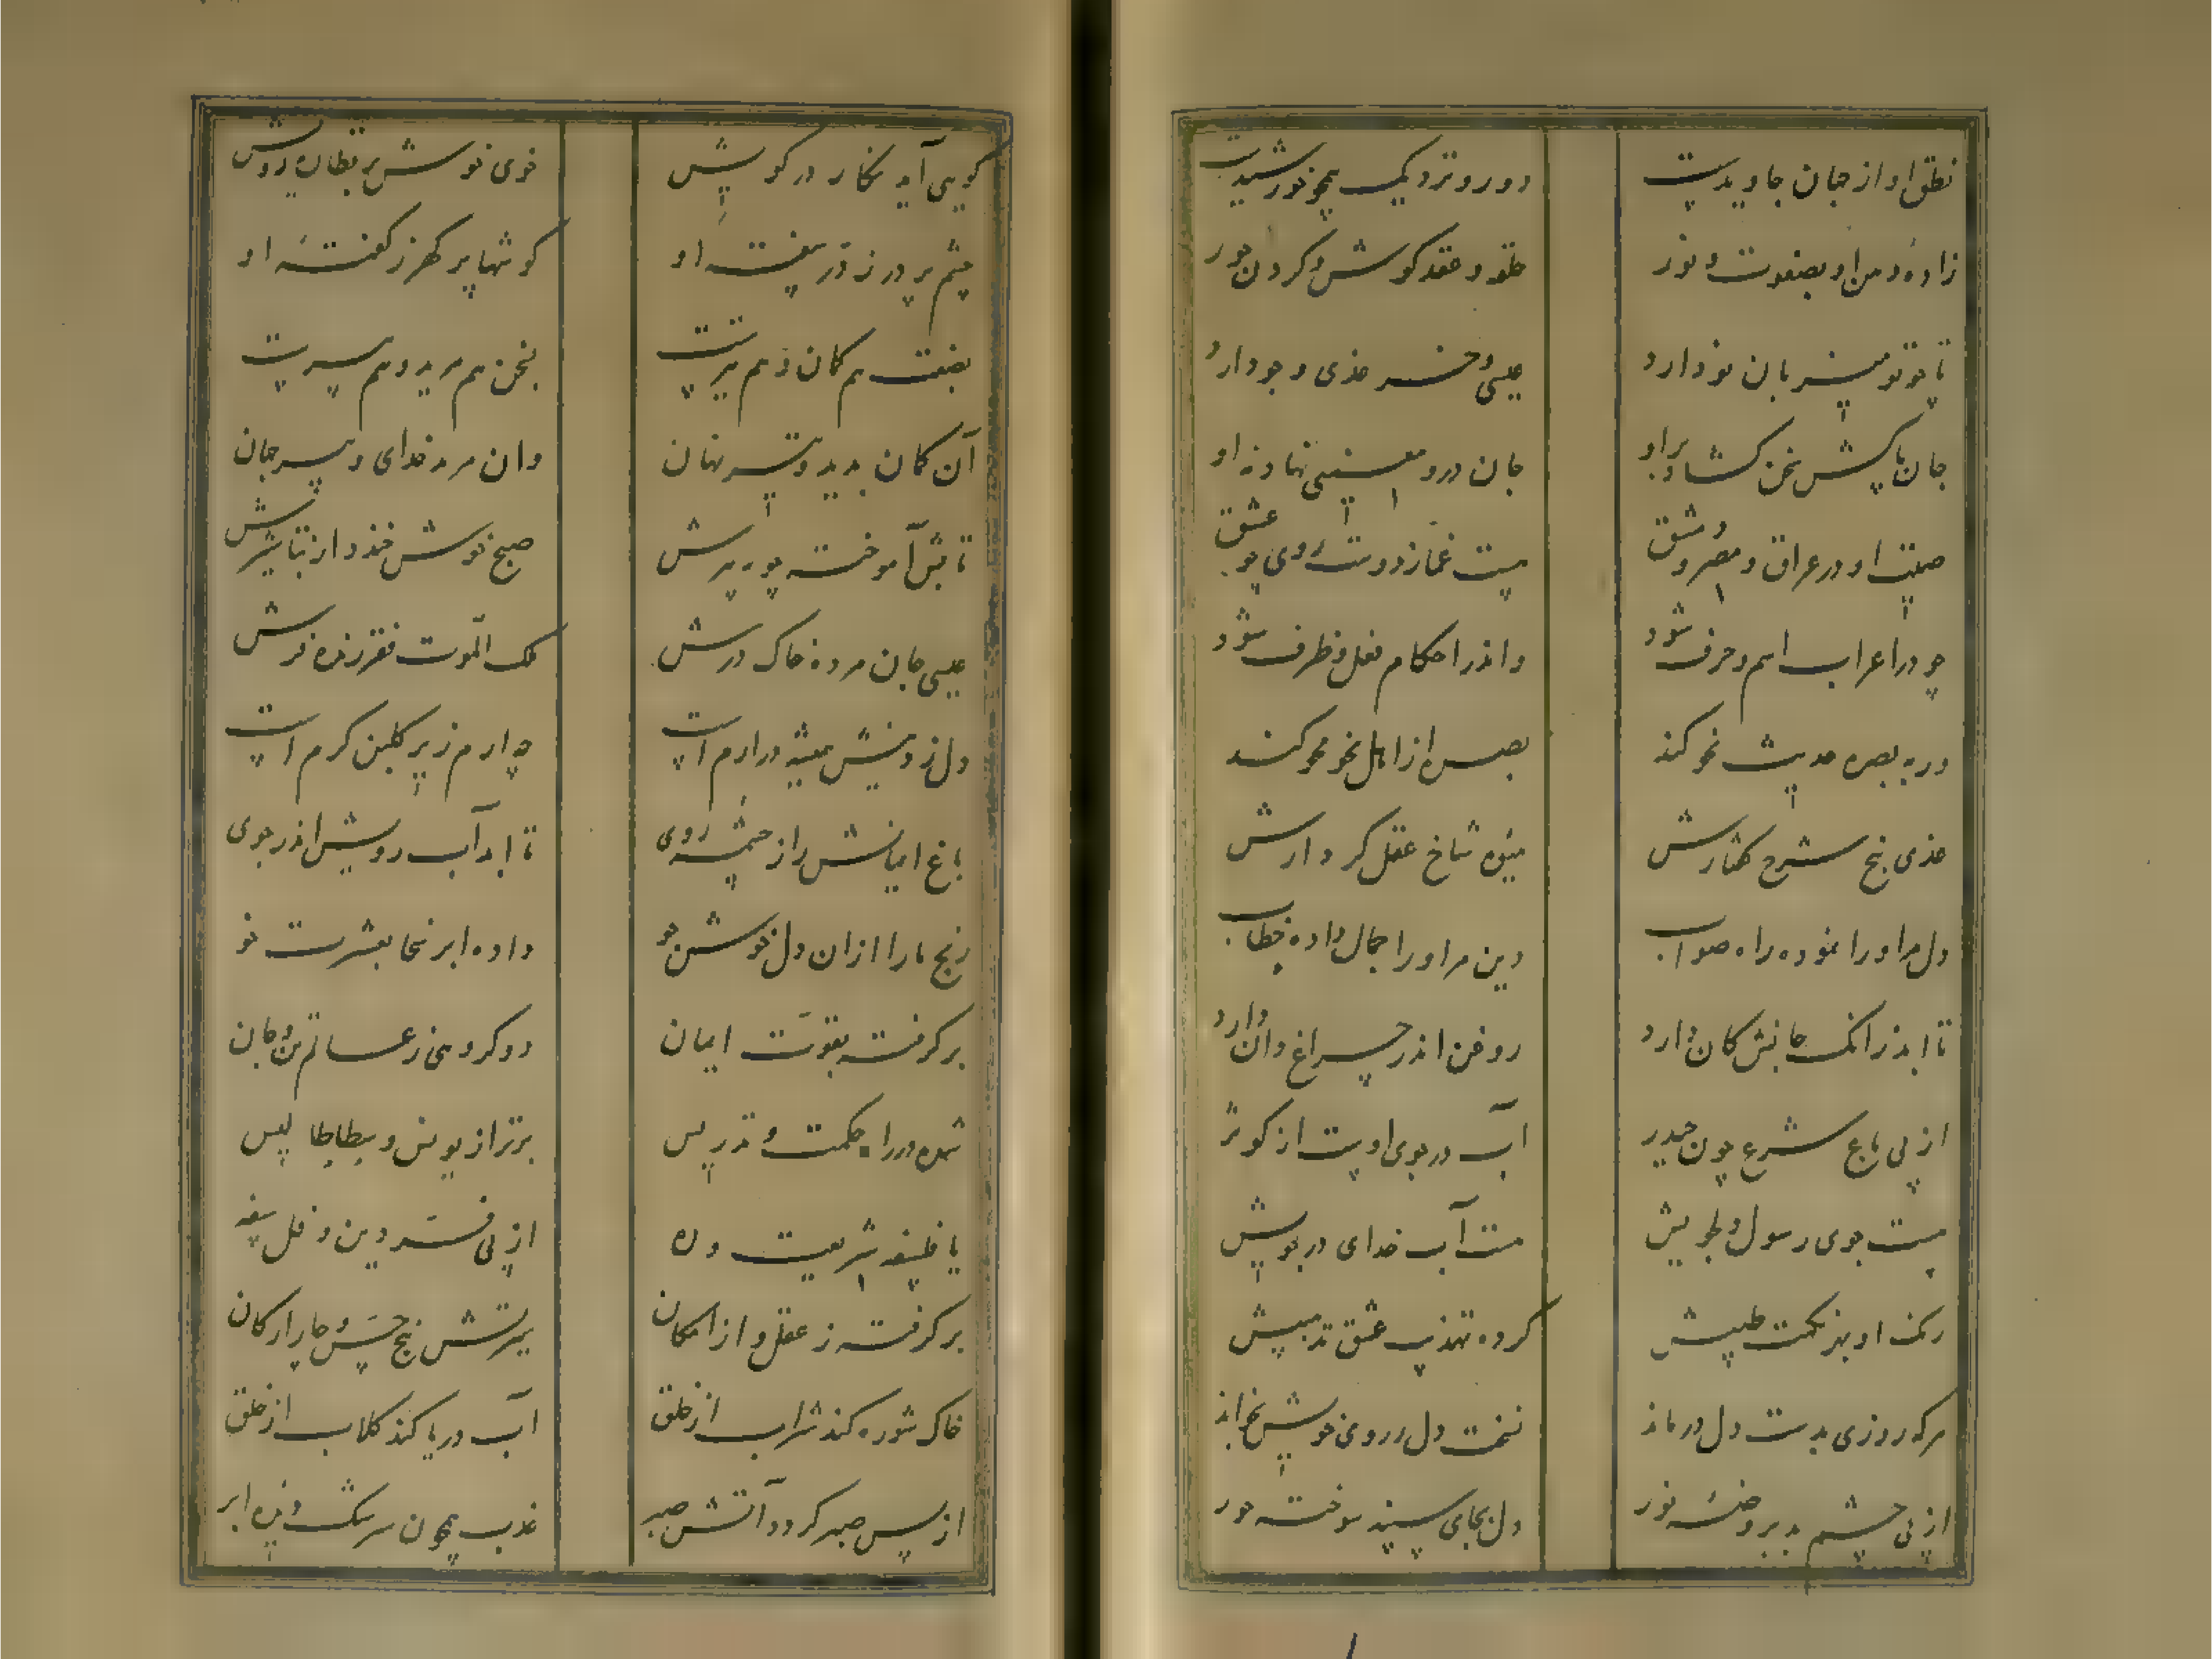 نطق او از جهان جاویدست
دور و نزدیک همچو خورشیدست
زاده ذهن او بصفوت و نور
حلقه و عقد گوش و گردن حور
تا چو تو میزبان نو دارد
عیسی و خر غذی و جو دارد
جان پاکش سخن گشاد برو
جان درو معنیی نهاد نه او
صیت او در عراق و مصر و دمشق
هست غماز دوست روی چو عشق
چو در اعراب اسم و حرف شود
واندر احکام فعل و ظرف شود
ور به بصره حدیث نحو کند
بصره از اهل نحو محو کند
غذی بیخ شرح گفتارش
میوه شاخ عقل کردارش
دل مر او را نموده راه صواب
دین مر او را جمال داده خطاب
تا ابد زانک جانش کان دارد
روغن اندر چراغ دان دارد
از پی باغ شرع چون حیدر
آب در جوی اوست از کوثر
هست جوی رسول دلجویش
هست آب خدای در جویش
رکن او بهر حکمت طبیش
کرده تهذیب عشق تهذیبش
هرکه روزی بدست دل درماند
نسخت دل ز روی خویش بخواند
از پی چشم بد بروضه نور
دل بجای سپند سوخته حور
گویی آید نگار در گوشش
خوی نوشش بر
چشم پر در ز در سفته او
گوشها پر گهر ز گفته او
بصفت هم کان و هم تیرست
بسخن هم مرید و هم پیرست
آن کان بدید و تیر نهان
وان مرید خدای و پیر جهان
تابش آموخته چو بدر برش
صبح نوش خندد از تباشیرش
عیسی جان مرده خاک درش
ملک الموت فقر زنده فرش
دل ز ذهنش همیشه در ارم است
چه ارم زیر گلبن کرم است
باغ ایمانش راز چشمه روی
تا ابد آب رویش اندر جوی
رنج ما را از آن دل خوش خو
داده ابر سخا بعشرت نو
برگرفته بقوت ایمان
دو گروهی ز عالم تن و جان
شده در راه حکمت و تدریس
برتر از یونس و بطاطالیس
با فلیسفه شریعت و ره
از پی فر دین و فلسفه
برگرفته ز عقل و از امکان
سرتش پنج حس و چار ارکان
خاک شوره کند شراب از خلق
آب دریا کند گلاب از خلق
از پس صبر گردد آتش صبر
عذب همچون سرشک دیده ابر